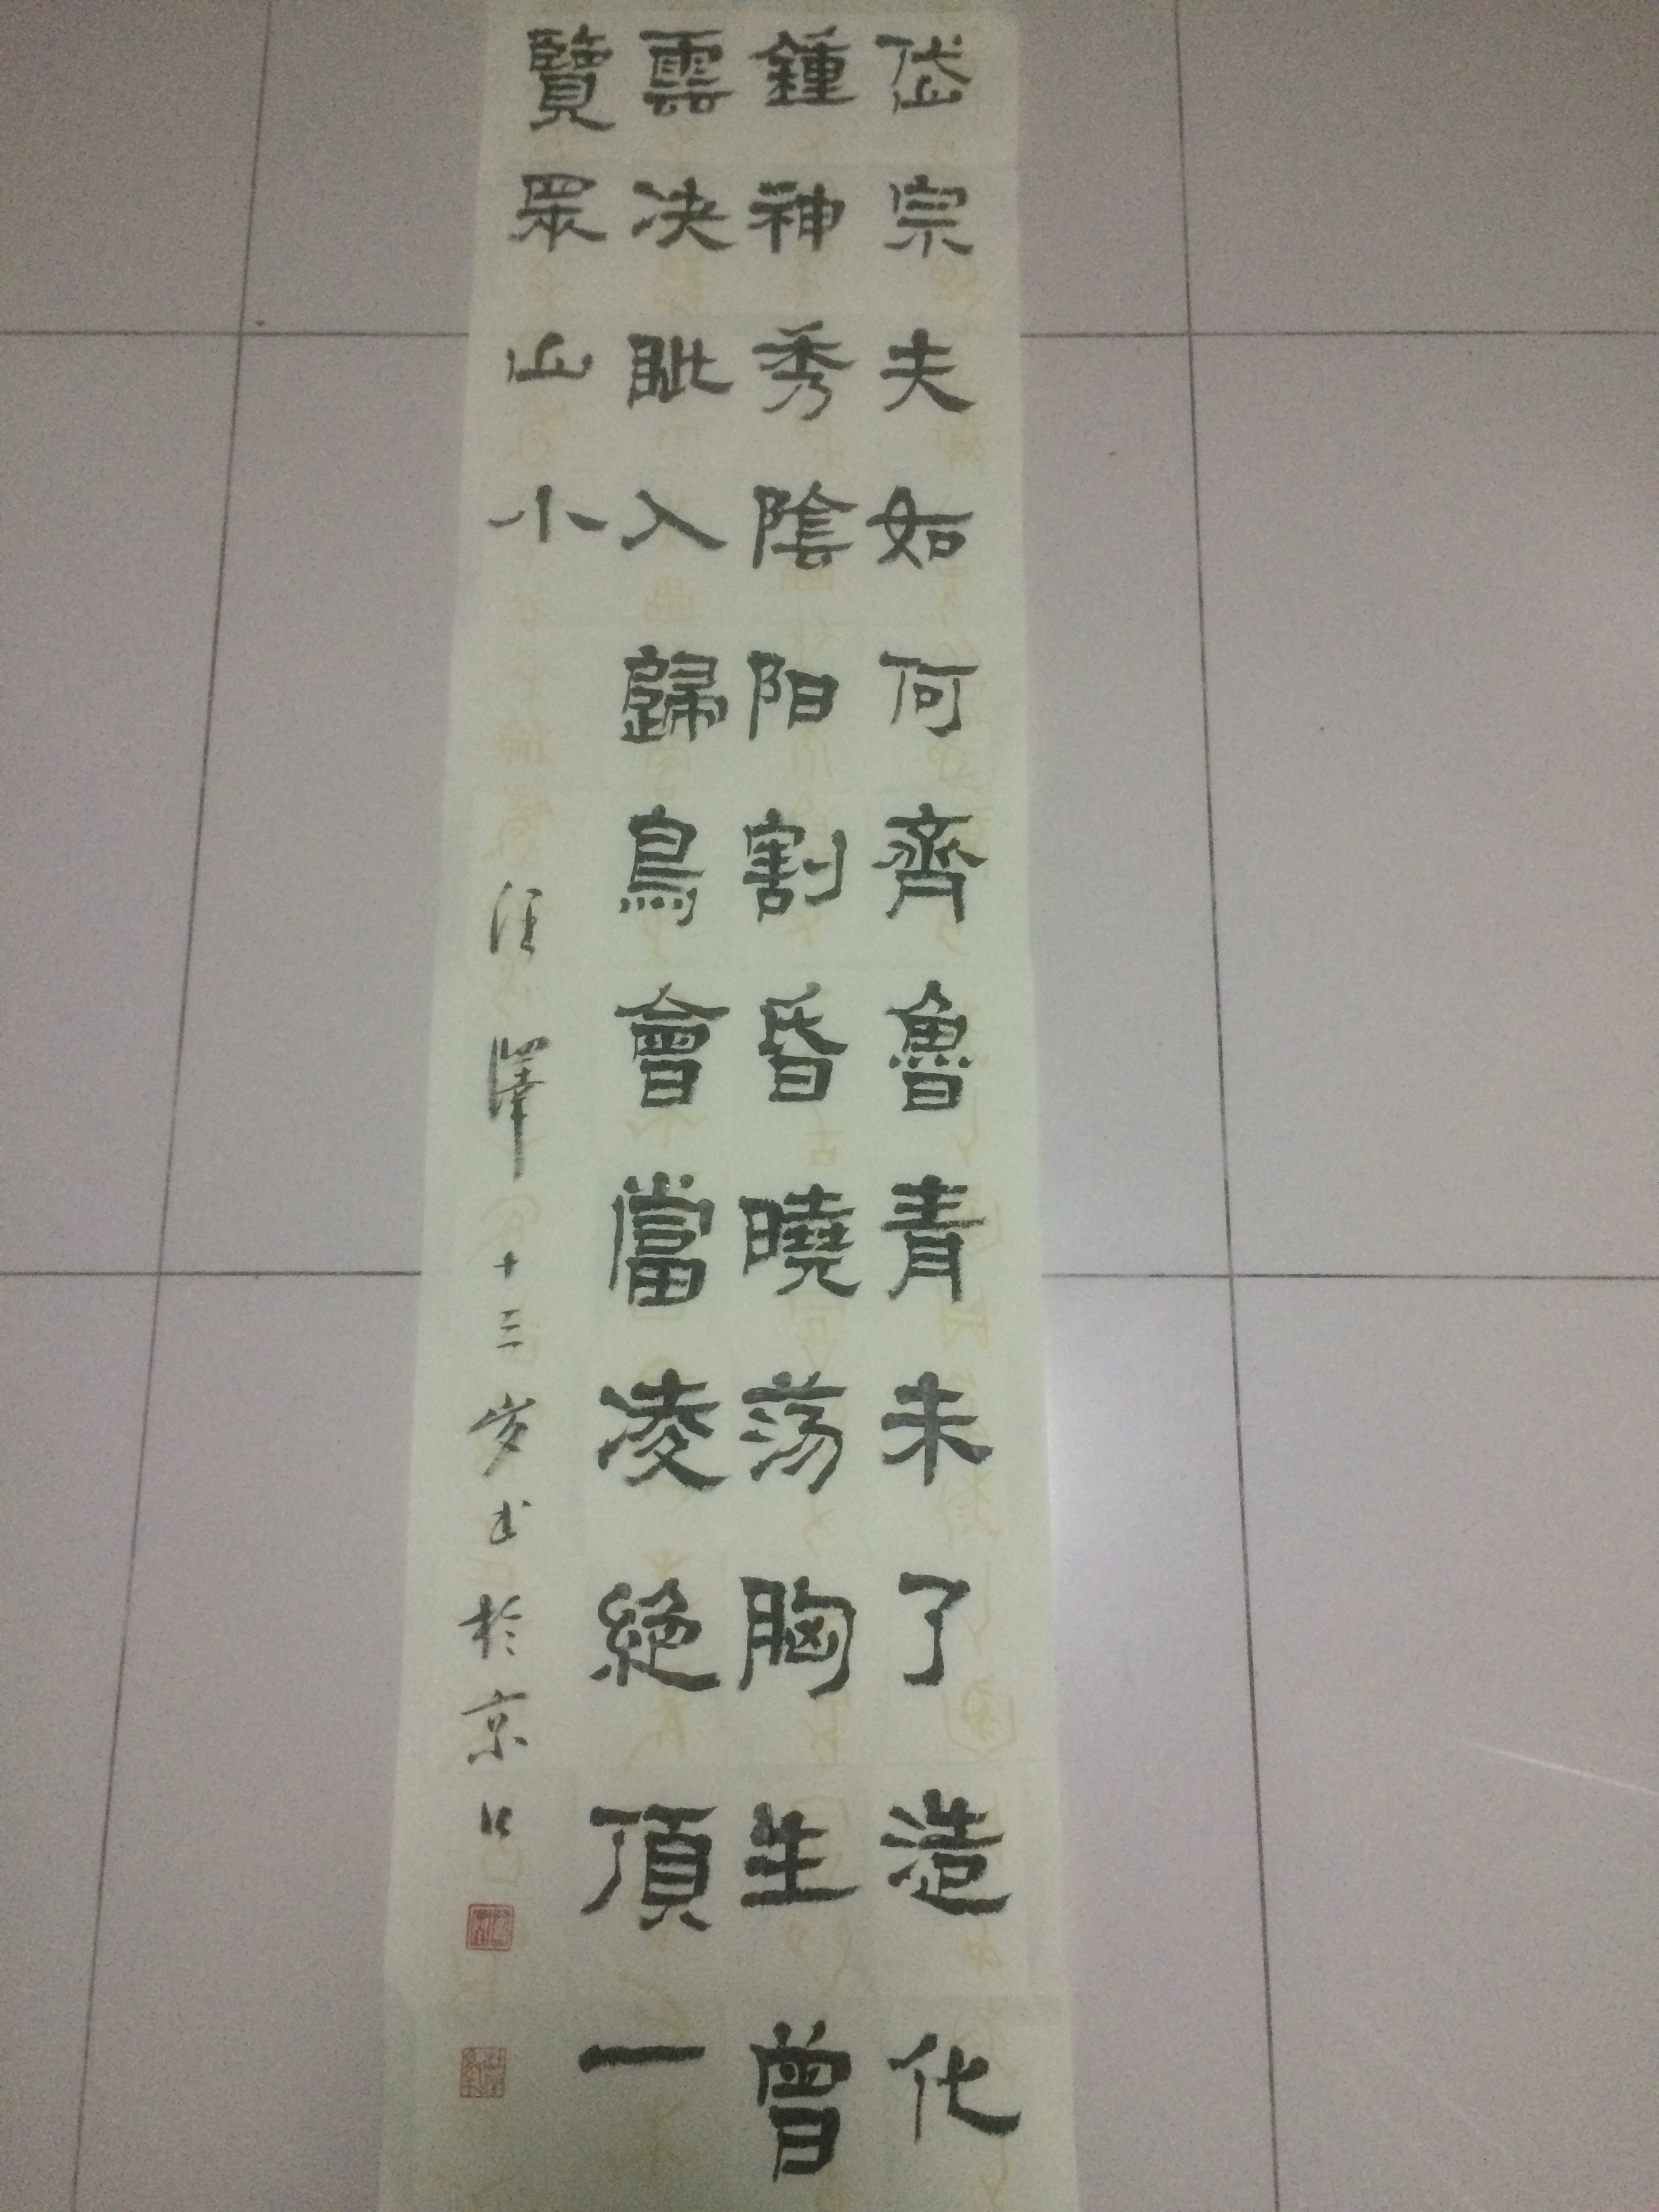 岱宗夫如何齊魯青未了造化
鍾神秀陰阳割昏曉荡胸生曾
雲决眦入歸鳥會當凌絕頂一
覽眾山小
汪澤十三岁书於京口